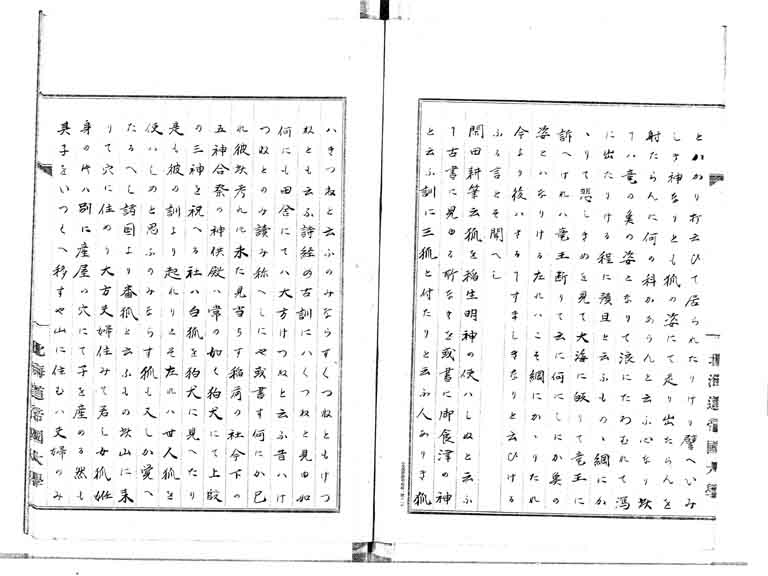 とハかり打云ひて居られたりけり譬へいみ
しき神なりとも狐の姿にて走り出たらんを
射たらんに何の科かあらんと云ふ心なり
てハ竜の美の姿となりて浪にたわむれて
に出たりける程に預且と云ふものゝ綱にか
ゝりて悲しきめを見て大海に皈りて竜王に
訴へけれハ竜王断りて云に何にしにか美の
姿とハなりけるされハこそ綱にかゝりたれ
今より後ハするてすましきなりと云ひける
ふる言とそ聞へし
閑田耕筆云狐を稲生明神の使ハしめと云ふ
て古書に見ゆる所なきを或書に御食津の神
と云ふ訓に三狐と付たりと云ふ人あり
ハきつねと云ふのみならすくつねともけつ
ねとも云ふ詩経の古訓にハくつねと見ゆ如
何にも田舎にてハ大方けつねと云ふ昔ハけ
つねとのみ讀み称へしにや或書す何にか已
れ彼攷考れに未た見当らす稲荷の社今下の
五神合祭の神供殿ハ常の如く狛犬にて上殿
の三神を祝へる社ハ白狐を狛犬に見へたり
是も彼の訓より起れりとそされハ世人狐を
使ハしめと思ふのみならす狐も又しか覚へ
たるへし諸国より番狐と云ふもの山に来
りて穴に住めり大方夫婦住みて若し女狐妊
身の時ハ別に産屋の穴にて子を産める然も
其子をいつくへ移すや山に住むハ夫婦のみ
北海道帝國大學
北海道帝國大學